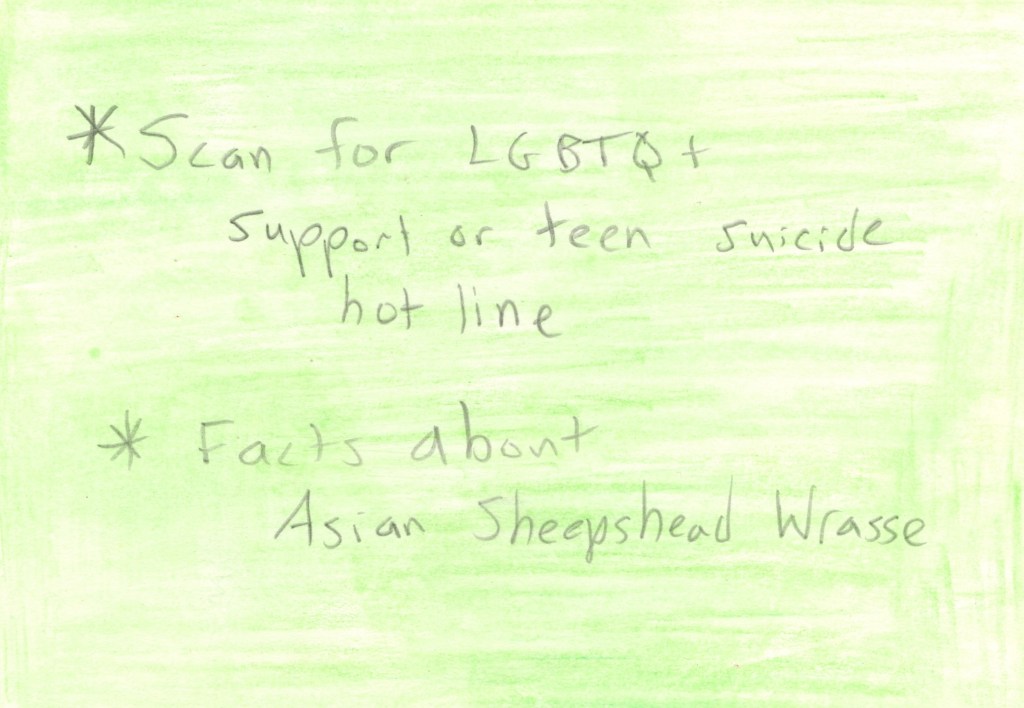 * Scan for LGBTQ+
support or teen suicide
hot line
* Facts about
Asian Sheepshead Wrasse